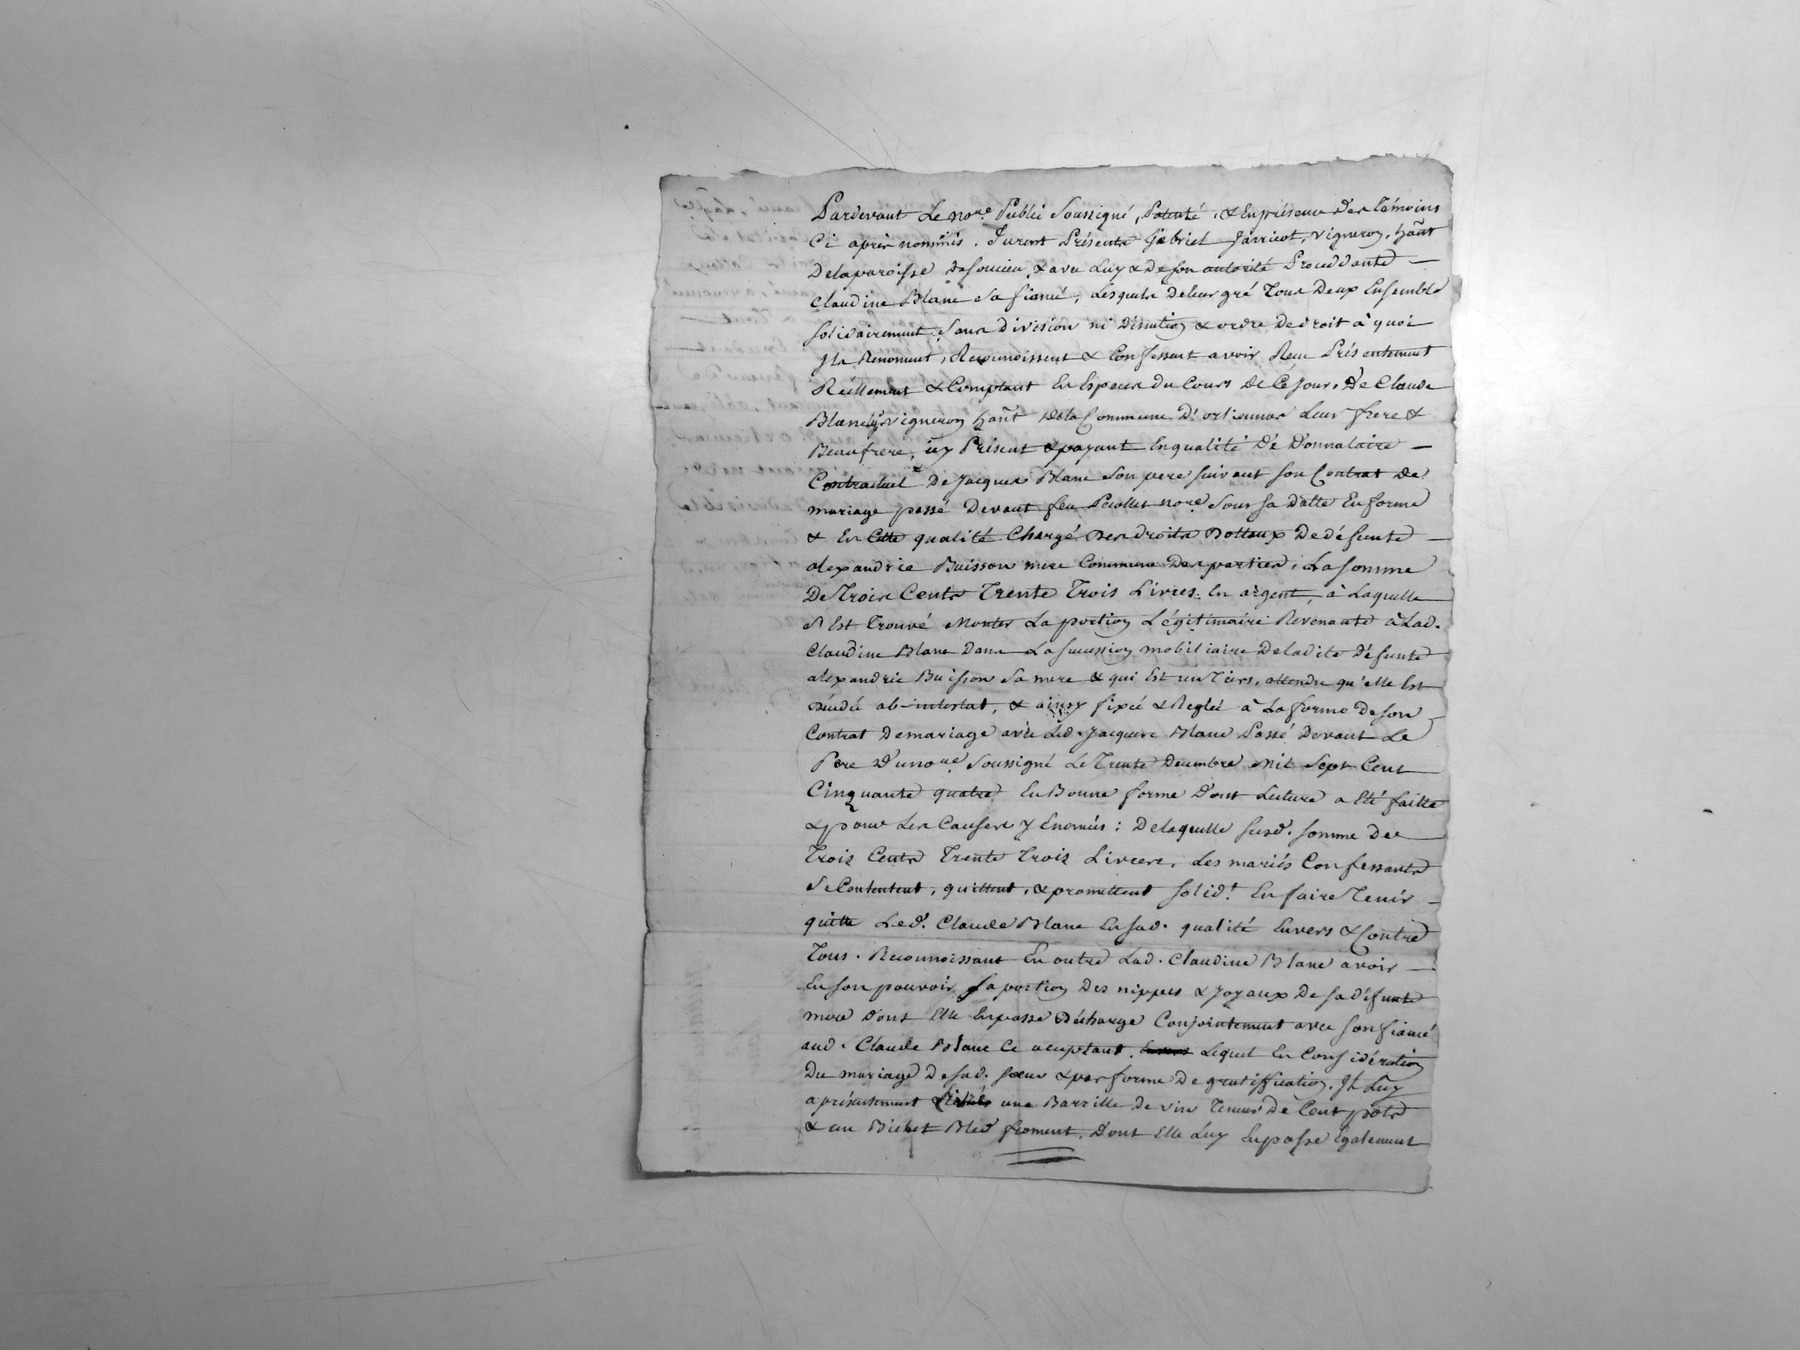 Pardevant Le nore. Public Soussigné, Patenté, & En présence Des Témoins
Ci après nommés. Furent Présents Gabriel Jarricot, vigneron, hañt
Delaparoisse de soucieu, & avec Luy & De son autorité Procéddante —
Claudine Blanc Sa fiancé, Lesquels de leur gré Tous Deux Ensemble
solidairement, sans Division ni Discution & ordre De droit à quoi
Ils Renoncent, Reconnoissent & Confessent avoir Reçu Présentement
Réellement & Comptant En Espèces Du Cours De Cé jour, De Claude
Blanc vigneron hañt Dela Commune D'orliennas Leur frere &
Beaufrere, icy Présent & payant En qualité Dé Donnataire —
Contractuel De Jacques Blanc Son pere suivant son Contrat de
mariage passé Devant feu Peiollet nore Sous sa Datte En forme
& En Cette qualité Chargé Des droits Dottaux De défunte —
alexandrie Buisson mere Commune Des parties, La somme
De Trois Cents Trente Trois Livres En argent, à Laquelle
S'Est Trouvé Monter La portion Légitimaire Revenante à Lad.
Claudine Blanc Dans La succession mobiliaire De ladite Défunte
alexandrie Buisson Sa mere & qui Est un Tiers, attendu qu'elle Est
Décédée ab-intestat, & ainsy fixée & Reglée à La forme De son
Contrat De mariage avec Led. Jacques Blanc Passé Devant Le
Pere D'u nore. Soussigné Le Trente Décembre Mil Sept Cent
Cinquante quatre En Bonne forme D'ont Lecture a Eté faitte
& pour Les Causes y Enoncés : De laquelle susd. somme De
Trois Cents Trente Trois Livres, Les mariés Confessants
Se Contentent, quittent, & promettent solidt. En faire Tenir —
quitte Led. Claude Blanc En sad. qualité Envers & Contre
Tous. Reconnoissant En outre Lad. Claudine Blanc avoir —
En son pouvoir Sa portion Des nippes & Joyaux De sa défunte
mere D'ont Elle En passe Décharge Conjointement avec son fiancé
aud. Claude Blanc Ce acceptant. Lequel En Considération
Du mariage De sad. soeur & par forme De gratiffication, Il Luy
a présentement Livré une Barrille de vin Teneur De Cent pots
& un Bichet Bled froment, D'ont Elle Luy En passe Egalement